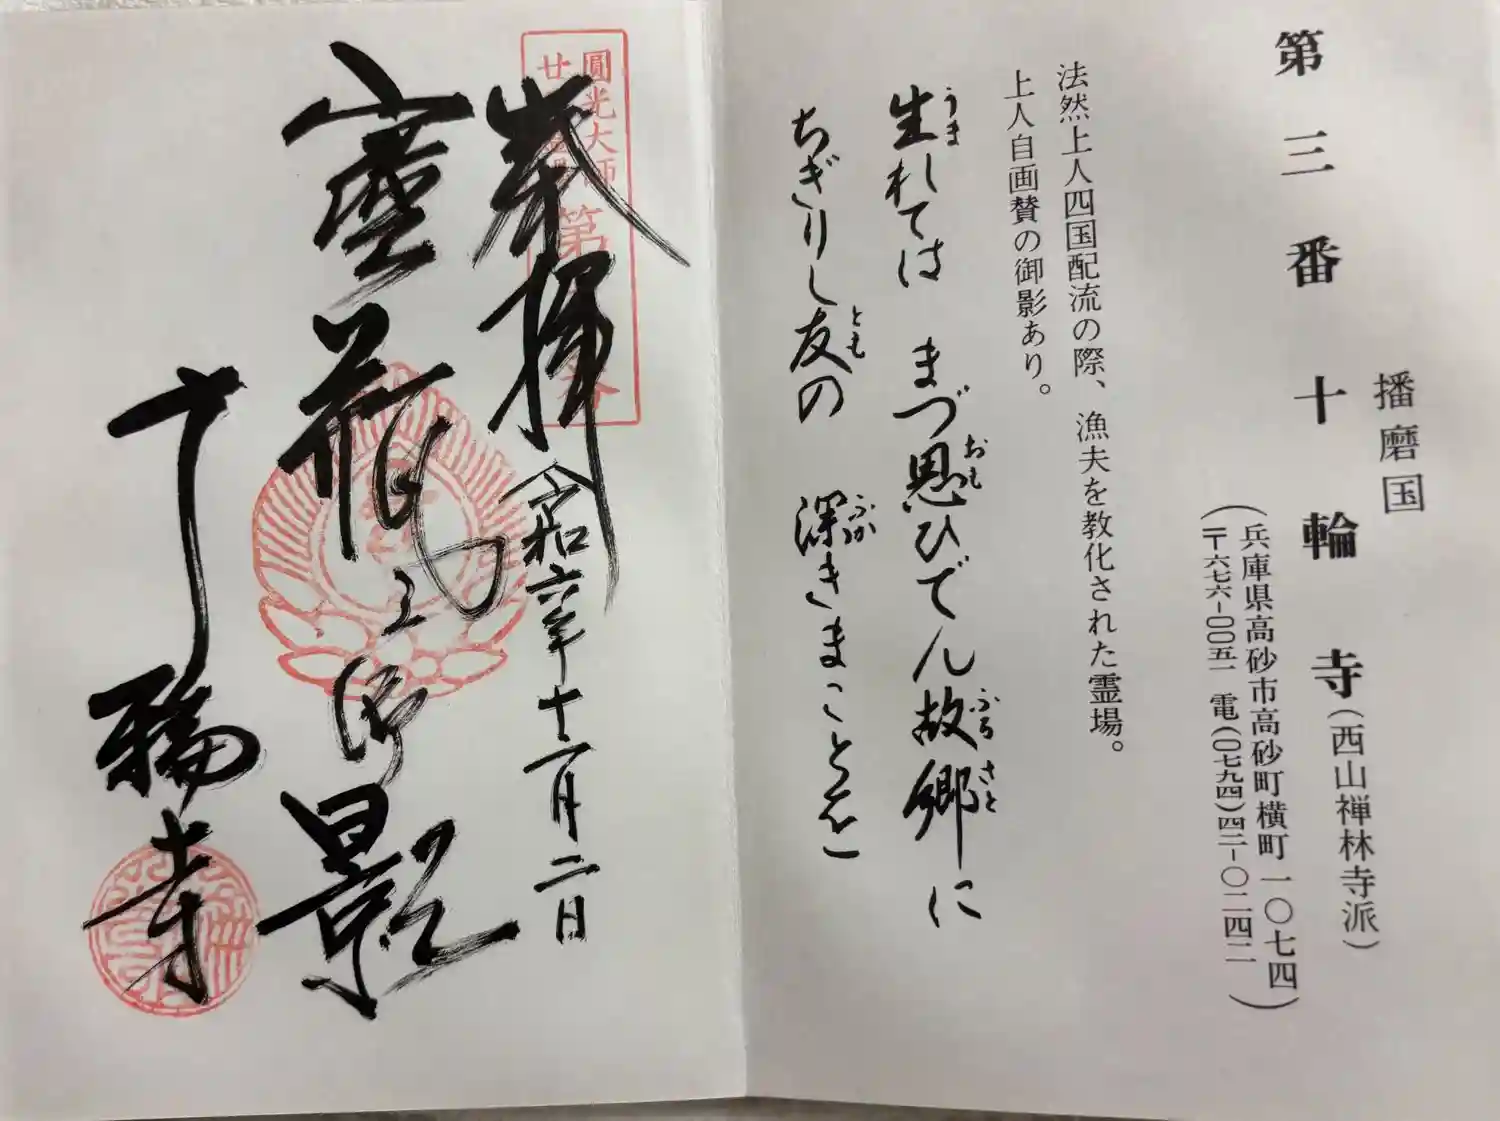 第三番 十輪寺(西山禅林寺派)
播磨国
(兵庫県高砂市高砂町横町一〇七四
〒六七六-〇〇五一 電(〇七九四)四二-〇二四二)
法然上人四国配流の際、漁夫を教化された霊場。
上人自画賛の御影あり。
生れては まづ思ひでん故郷に
うま おも ふるさと
ちぎりし友の 深きまことを
とも ふか
圓光大師
廿
第
番
奉拝 令和六年十一月二日
宝瓶 御影
十輪寺